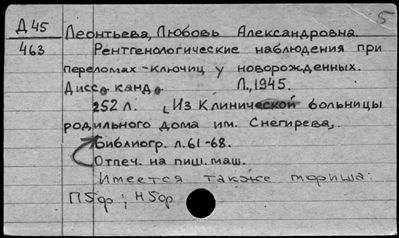 5
Д 45 Леонтьева, Любовь Александровна.
463 Рентгенологические наблюдения при
переломах-ключиц у новорожденных.
Дисс. канд. Л., 1945.
252 л. [Из Клинической больницы
родильного дома им. Снегирева,.
Библиогр. л. 61-68.
Отпеч. на пиш. маш.
Имеется также тфиша:
П5фр ; Н5фр